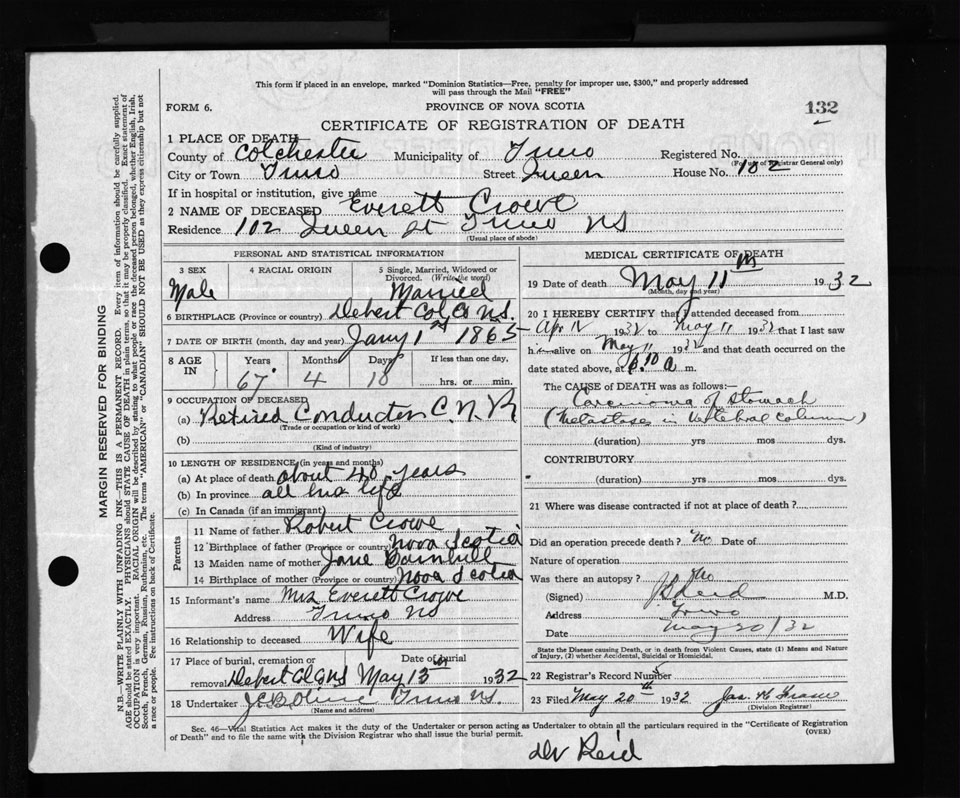 This form if placed in an envelope, marked "Dominion Statistics—Free, penalty for improper use, $300," and properly addressed
will pass through the Mail "FREE"
FORM 6.
PROVINCE OF NOVA SCOTIA
132
CERTIFICATE OF REGISTRATION OF DEATH
1 PLACE OF DEATH—
County of Colchester Municipality of Truro Registered No.
(For use of Registrar General only)
City or Town Truro Street Queen House No. 102
If in hospital or institution, give name
2 NAME OF DECEASED Everett Crowe
Residence 102 Queen St Truro NS
(Usual place of abode)
PERSONAL AND STATISTICAL INFORMATION
3 SEX 4 RACIAL ORIGIN 5 Single, Married, Widowed or
Divorced. (Write the word)
Male Married
6 BIRTHPLACE (Province or country) Debert Col Co NS.
7 DATE OF BIRTH (month, day and year) Jany 1st 1865
8 AGE Years Months Days If less than one day,
IN 67 4 10 hrs. or min.
9 OCCUPATION OF DECEASED
(a) Retired Conductor C.N.R
(Trade or occupation or kind of work)
(b)
(Kind of industry)
10 LENGTH OF RESIDENCE (in years and months)
(a) At place of death about 40 years
(b) In province all his life
(c) In Canada (if an immigrant)
Parents
11 Name of father Robert Crowe
12 Birthplace of father (Province or country) Nova Scotia
13 Maiden name of mother Jane Barnhill
14 Birthplace of mother (Province or country) Nova Scotia
15 Informant's name Mrs Everett Crowe
Address Truro NS
16 Relationship to deceased Wife
17 Place of burial, cremation or Date of burial
removal Debert Col Co NS May 13th 1932
18 Undertaker Truro NS.
(Name and address)
MEDICAL CERTIFICATE OF DEATH
19 Date of death May 11th 1932
(Month, day and year)
20 I HEREBY CERTIFY that I attended deceased from
Apr 1932 to May 11 1932 that I last saw
him alive on May 11 1932 and that death occurred on the
date stated above, at a m.
The CAUSE of DEATH was as follows:
Carcinoma of Stomach
(Metastases in Vertebral Column)
(duration) yrs mos dys.
CONTRIBUTORY
(duration) yrs mos dys.
21 Where was disease contracted if not at place of death?
Did an operation precede death? No Date of
Nature of operation
Was there an autopsy? No
(Signed) Reid M.D.
Address Truro
Date May 20/32
State the Disease causing Death, or in death from Violent Causes, state (1) Means and Nature
of Injury, (2) whether Accidental, Suicidal or Homicidal.
22 Registrar's Record Number
23 Filed May 20th 1932 Jas. Fraser
(Division Registrar)
Sec. 46—Vital Statistics Act makes it the duty of the Undertaker or person acting as Undertaker to obtain all the particulars required in the "Certificate of Registration
of Death" and to file the same with the Division Registrar who shall issue the burial permit.
(OVER)
Dr Reid
MARGIN RESERVED FOR BINDING
N.B.—WRITE PLAINLY WITH UNFADING INK—THIS IS A PERMANENT RECORD. Every item of information should be carefully supplied.
AGE should be stated EXACTLY. PHYSICIANS should STATE CAUSE OF DEATH in plain terms, so that it may be properly classified. Exact statement of
OCCUPATION is very important. RACIAL ORIGIN will be described by stating to what people or race the deceased person belonged, whether English, Irish,
Scotch, French, German, Russian, Ruthenian, etc. The terms "AMERICAN" or "CANADIAN" SHOULD NOT BE USED as they express citizenship but not
a race or people. See instructions on back of Certificate.